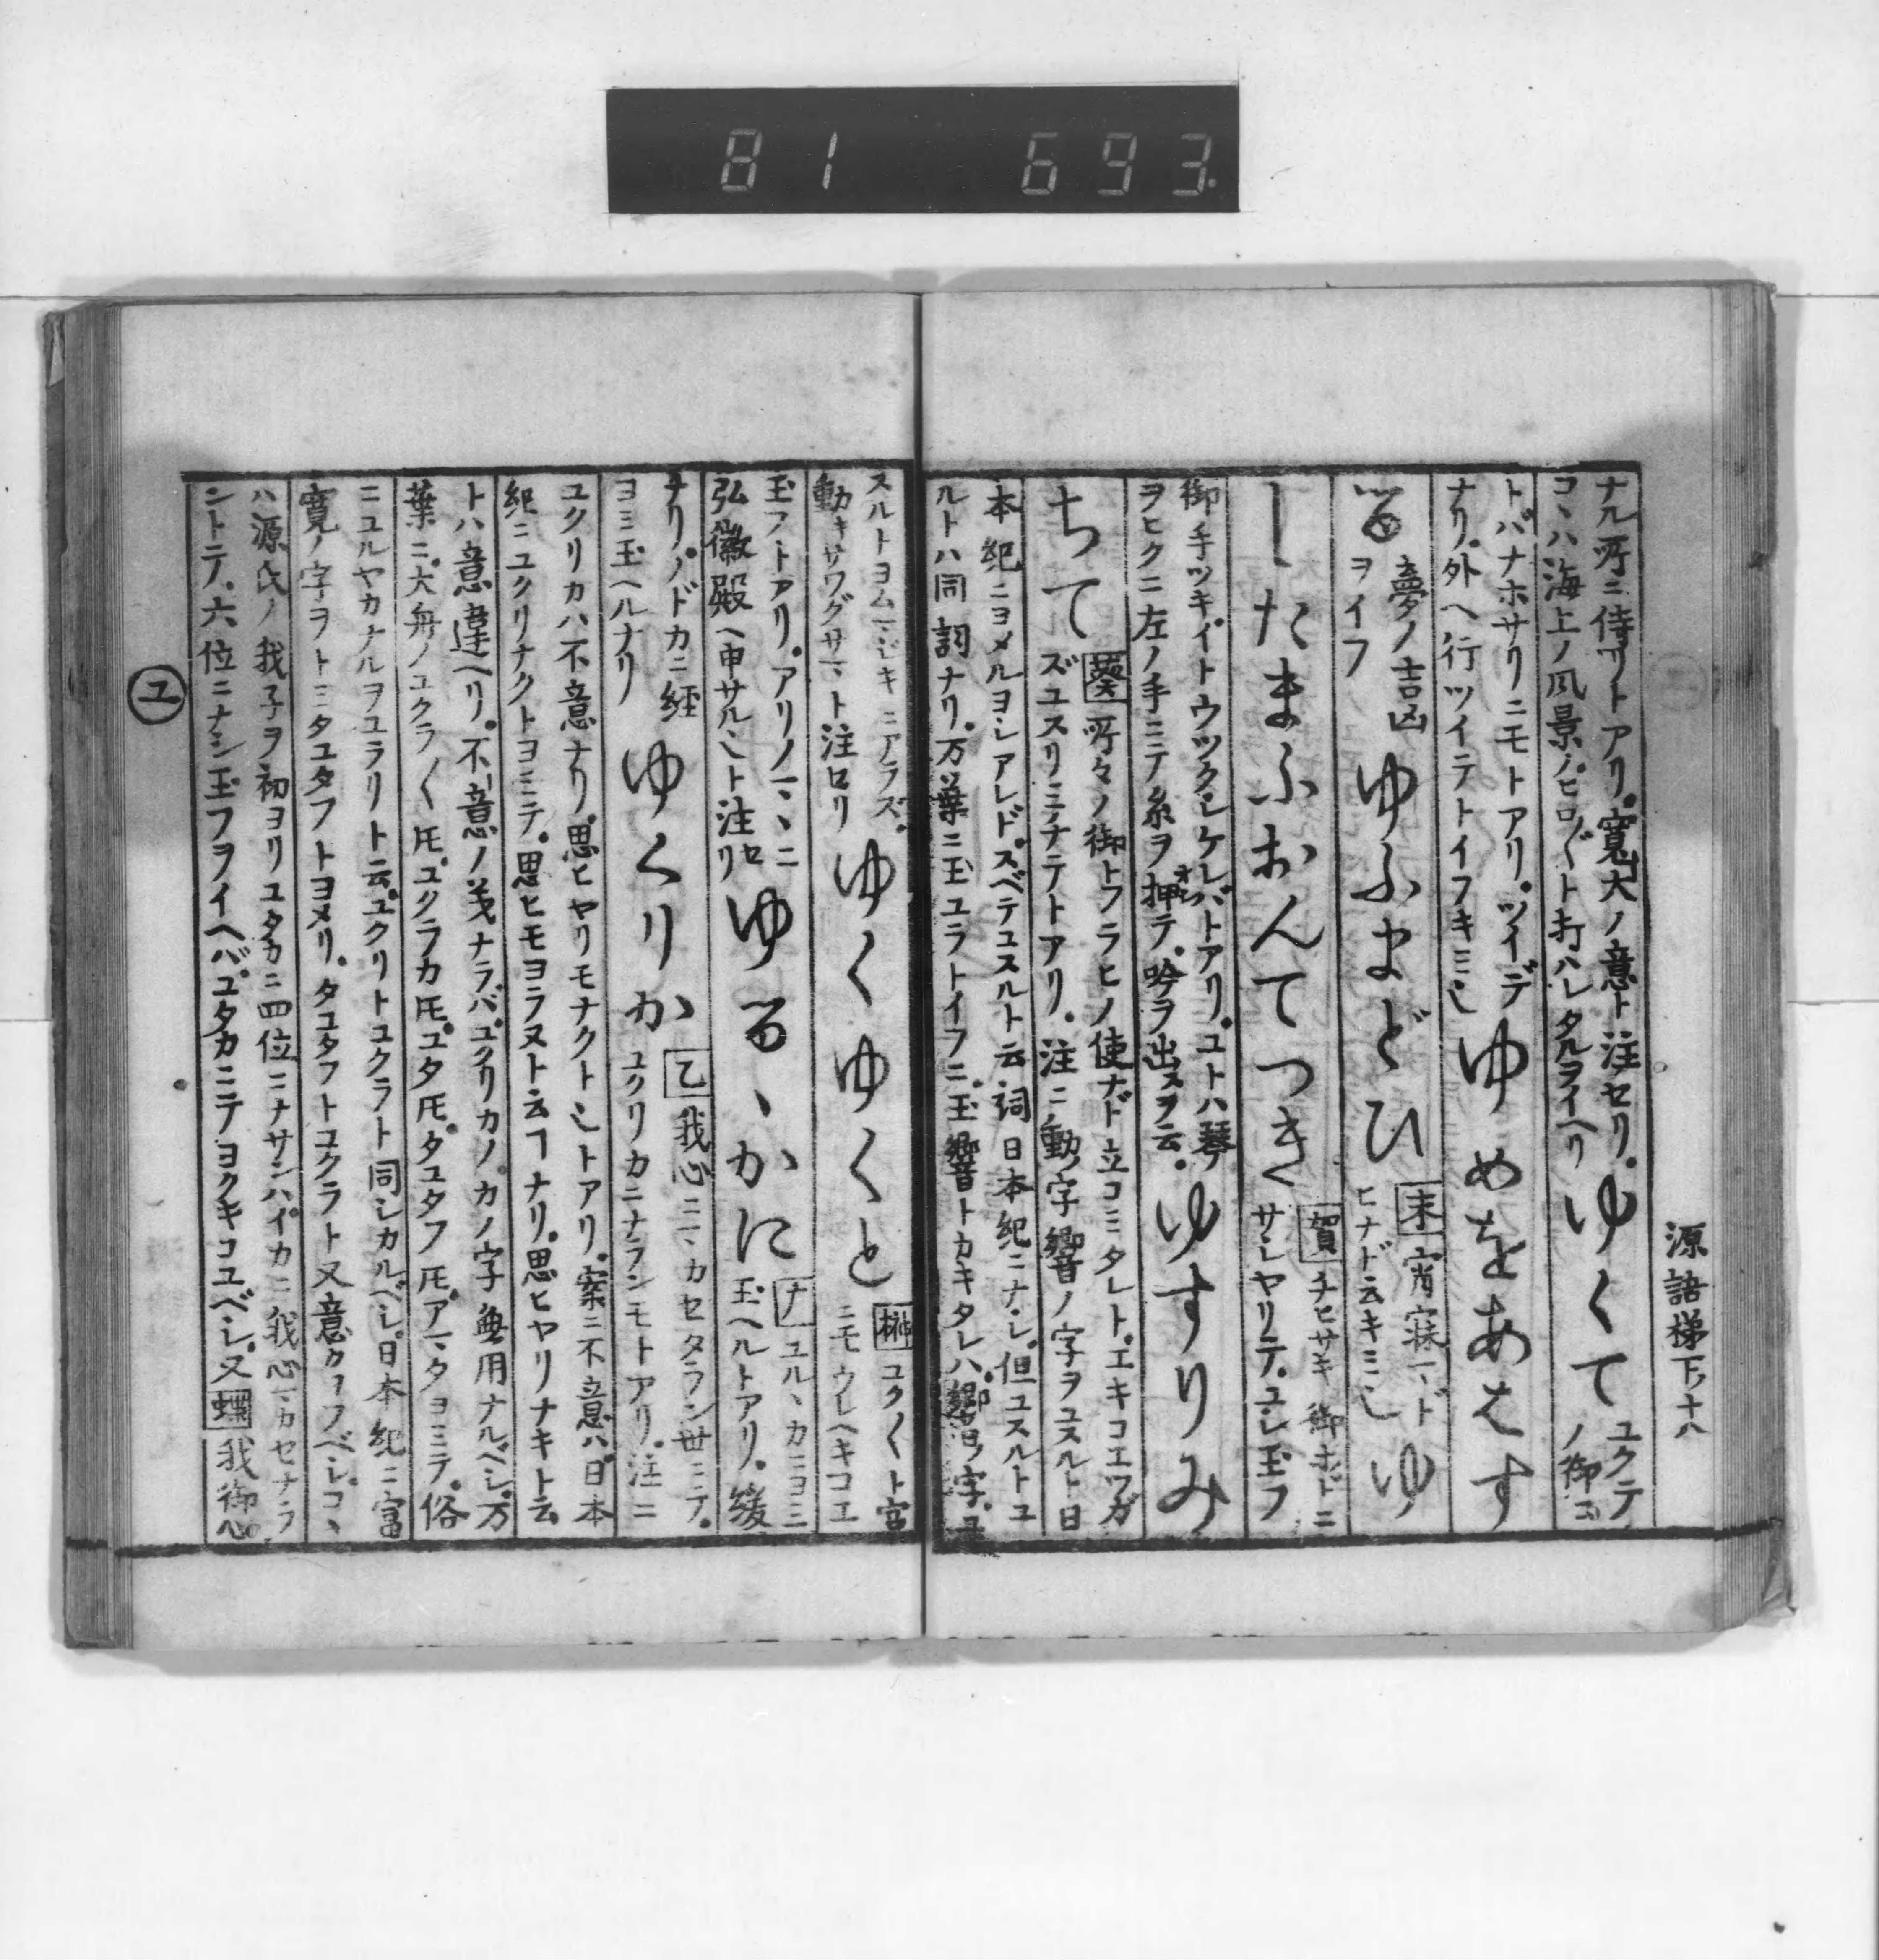 81 693
源語梯下ノ十八
ナル所ニ侍リトアリ。寛大ノ意ト注セリ。
コヽハ海上ノ風景ノヒロ〴〵ト打ハレタルヲイヘリ
ゆくて
ユクテノ御コ
トバナホサリニモトアリ。ツイデ
ナリ。外ヘ行ツイテトイフキミ也
ゆめをあはす
る
夢ノ吉凶
ヲイフ
ゆふまどひ
末 宵寐マドヒナド云キミ也
ゆしたまふおんてつき
賀 チヒサキ御ホドニ
サシヤリテ。ユシ玉フ
御手ツキ。イトウツクシケレバトアリ。ユトハ琴
ヲヒクニ左ノ手ニテ糸ヲ押テ。吟ヲ出スヲ云。
ゆすりみ
ちて
葵 所々ノ御トフラヒノ使ナド立コミタレト。エキコエツガ
ズユスリミチテトアリ。注ニ動ノ字響ノ字ヲユスルト日
本紀ニヨメルヨシアレド。スベテユスルト云詞日本紀ニナシ。但ユスルトユ
ルトハ同詞ナリ。万葉ニ玉ユラトイフニ。玉響トカキタレハ。
スルトヨムマジキニアラズ。
動キサワグサマヽト注セリ
ゆくゆくと
榊 ユク〳〵ト宮
ニモウレヘキコエ
玉フトアリ。アリノマヽニ
弘徽殿ヘ申サル也ト注セリ
ゆるゝかに
ナ ユルヽカニヨミ
玉ヘルトアリ。緩
ナリ。ノドカニ経
ヨミ玉ヘルナリ
ゆくりか
乙 我心ニマカセタラン世ニテ。
ユクリカニナランモトアリ。注ニ
ユクリカハ不意ナリ。思ヒヤリモナクト也トアリ。案ニ不意ハ。日本
紀ニユクリナクトヨミテ。思ヒモヨラヌト云ヿナリ。思ヒヤリナキト云
トハ意違ヘリ。不意ノ義ナラバ。ユクリカノ。カノ字無用ナルベシ。万
葉ニ。大舟ノユクラ〳〵ト𪜈。ユクラカ𪜈。ユタ𪜈。タユタフ𪜈。アマタヨミテ。俗
ニユルヤカナルヲユラリト云。ユクリトユクラト同シカルベシ。日本紀ニ富
寛ノ字ヲトミタユタフトヨメリ。タユタフトユクラト又意カヨフベシ。コヽ
ハ源氏ノ我子ヲ初ヨリユタカニ四位ニナサンハイカニ我心マカセナラ
ントテ。六位ニナシ玉フヲイヘバ。ユタカニテヨクキコユベシ。又 蝶 我御心
ユ